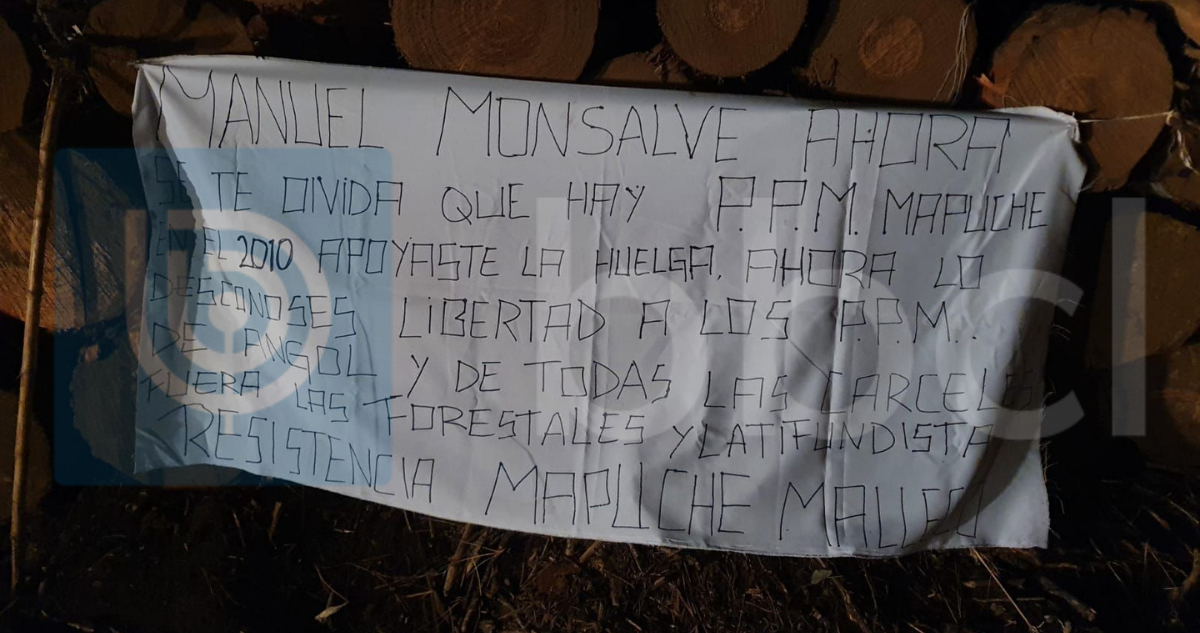 MANUEL MONSALVE AHORA
SE TE OLVIDA QUE HAY P.P.M. MAPUCHE
EN EL 2010 APOYASTE LA HUELGA, AHORA LO
DESCONOSES LIBERTAD A LOS P.P.M..
DE ANGOL Y DE TODAS LAS CARCELES
FUERA LAS FORESTALES Y LATIFUNDISTA
RESISTENCIA MAPUCHE MALLECO
bbcl